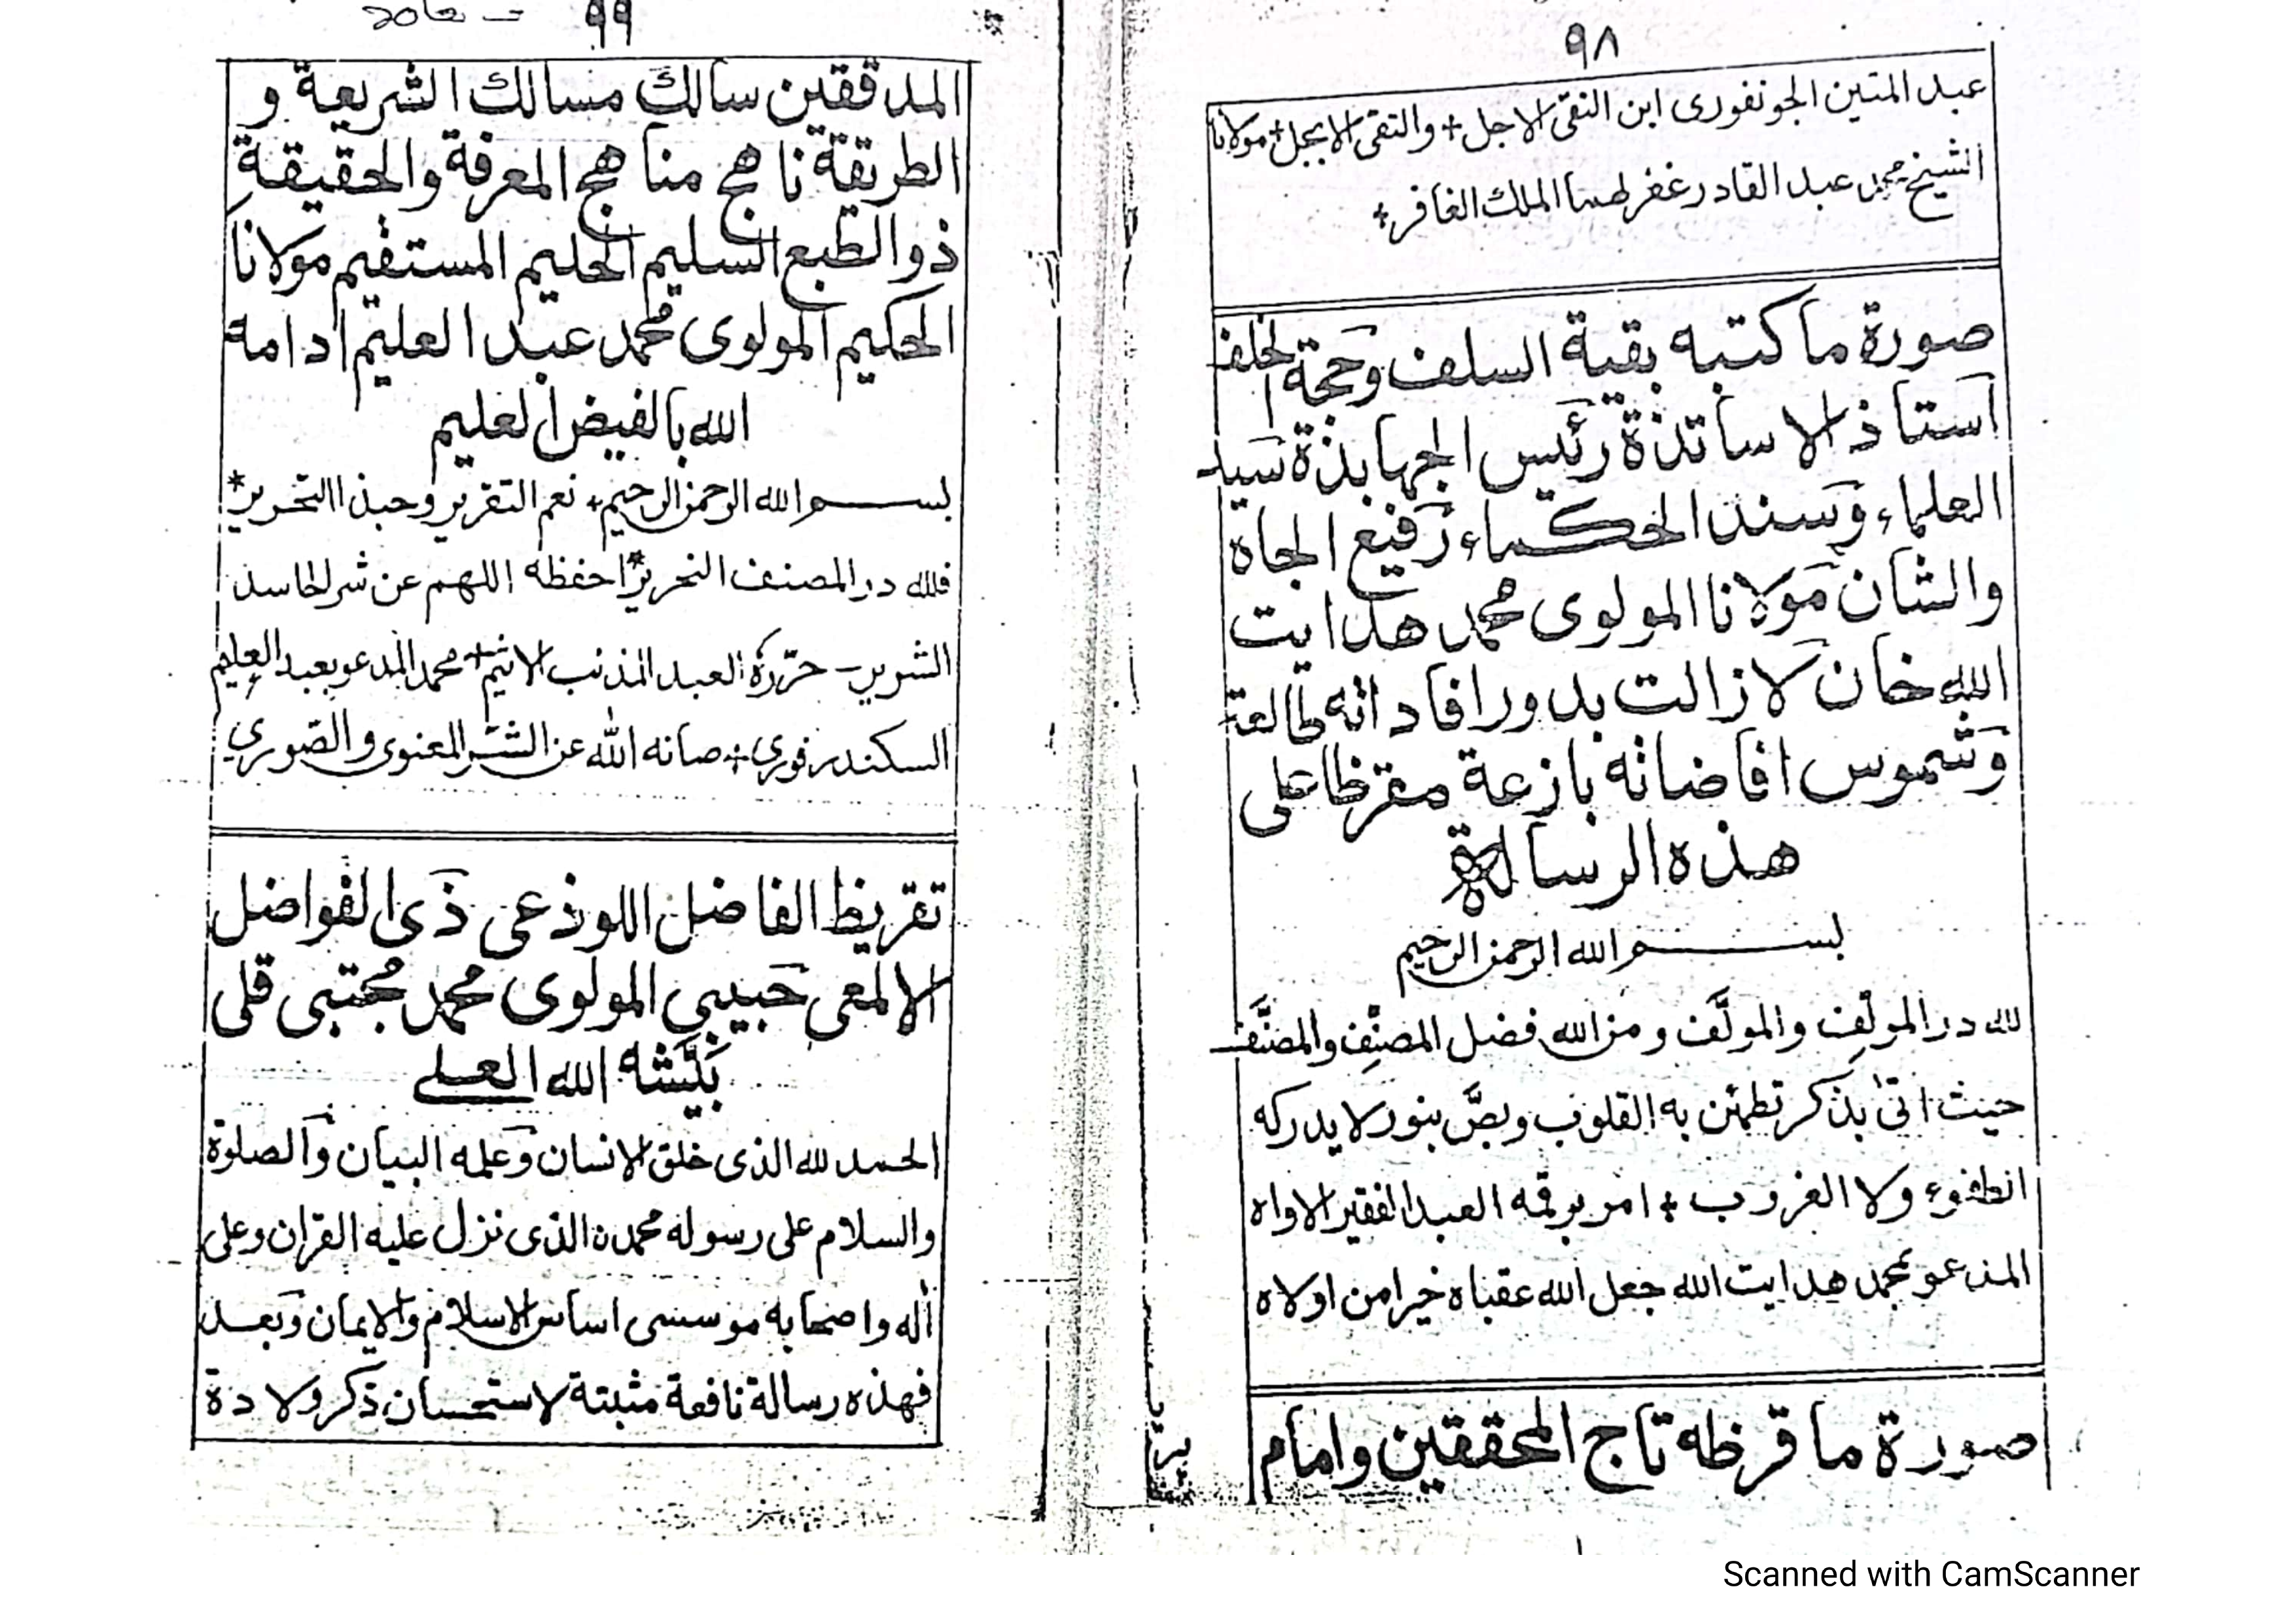 ٩٨
عبد المتين الجونفورى ابن النقى الاجل + والتقى الابجل + مولانا
الشيخ محمد عبد القادر غفر لهما الملك الغافر +
صورة ما كتبه بقية السلف وحجة الخلف
استاذ الاساتذة رئيس الجهابذة سيد
العلماء وسند الحكماء رفيع الجاه
والشان مولانا المولوى محمد هدايت
الله خان لا زالت بدور افاداته طالعة
وشموس افاضاته بازعة مقرظا على
هذه الرسالة
بسم الله الرحمن الرحيم
لله در المولِّف والمولَّف ومن الله فضل المصنِّف والمصنَّف
حيث اتى بذكر تطمئن به القلوب وبصَّ بنور لا يدركه
انطفوء ولا الغروب + امر برقمه العبد الفقير الاواه
المدعو بمحمد هدايت الله جعل الله عقباه خيرا من اولاه
صورة ما قرظه تاج المحققين وامام
٩٩
المدققين سالك مسالك الشريعة و
الطريقة ناهج مناهج المعرفة والحقيقة
ذو الطبع السليم الحليم المستقيم مولانا
الحكيم المولوى محمد عبد العليم ادامه
الله بالفيض العليم
بسم الله الرحمن الرحيم + نعم التقرير وحبذا التحرير *
فلله در المصنف النحرير * احفظه اللهم عن شر الحاسد
الشوير - حرّره العبد المذنب الاثيم + محمد المدعو بعبد العليم
السكندرفورى + صانه الله عن الشر المعنوى والصّورى
تقريظ الفاضل اللوذعى ذى الفواضل
الالمعى حبيبى المولوى محمد مجتبى قلى
بَيَّشه الله العلى
الحمد لله الذى خلق الانسان وعلمه البيان والصلوة
والسلام على رسوله محمدن الذى نزل عليه القران وعلى
اله واصحابه موسسى اساس الاسلام والايمان وبعد
فهذه رسالة نافعة مثبتة لاستحسان ذكر ولادة
Scanned with CamScanner